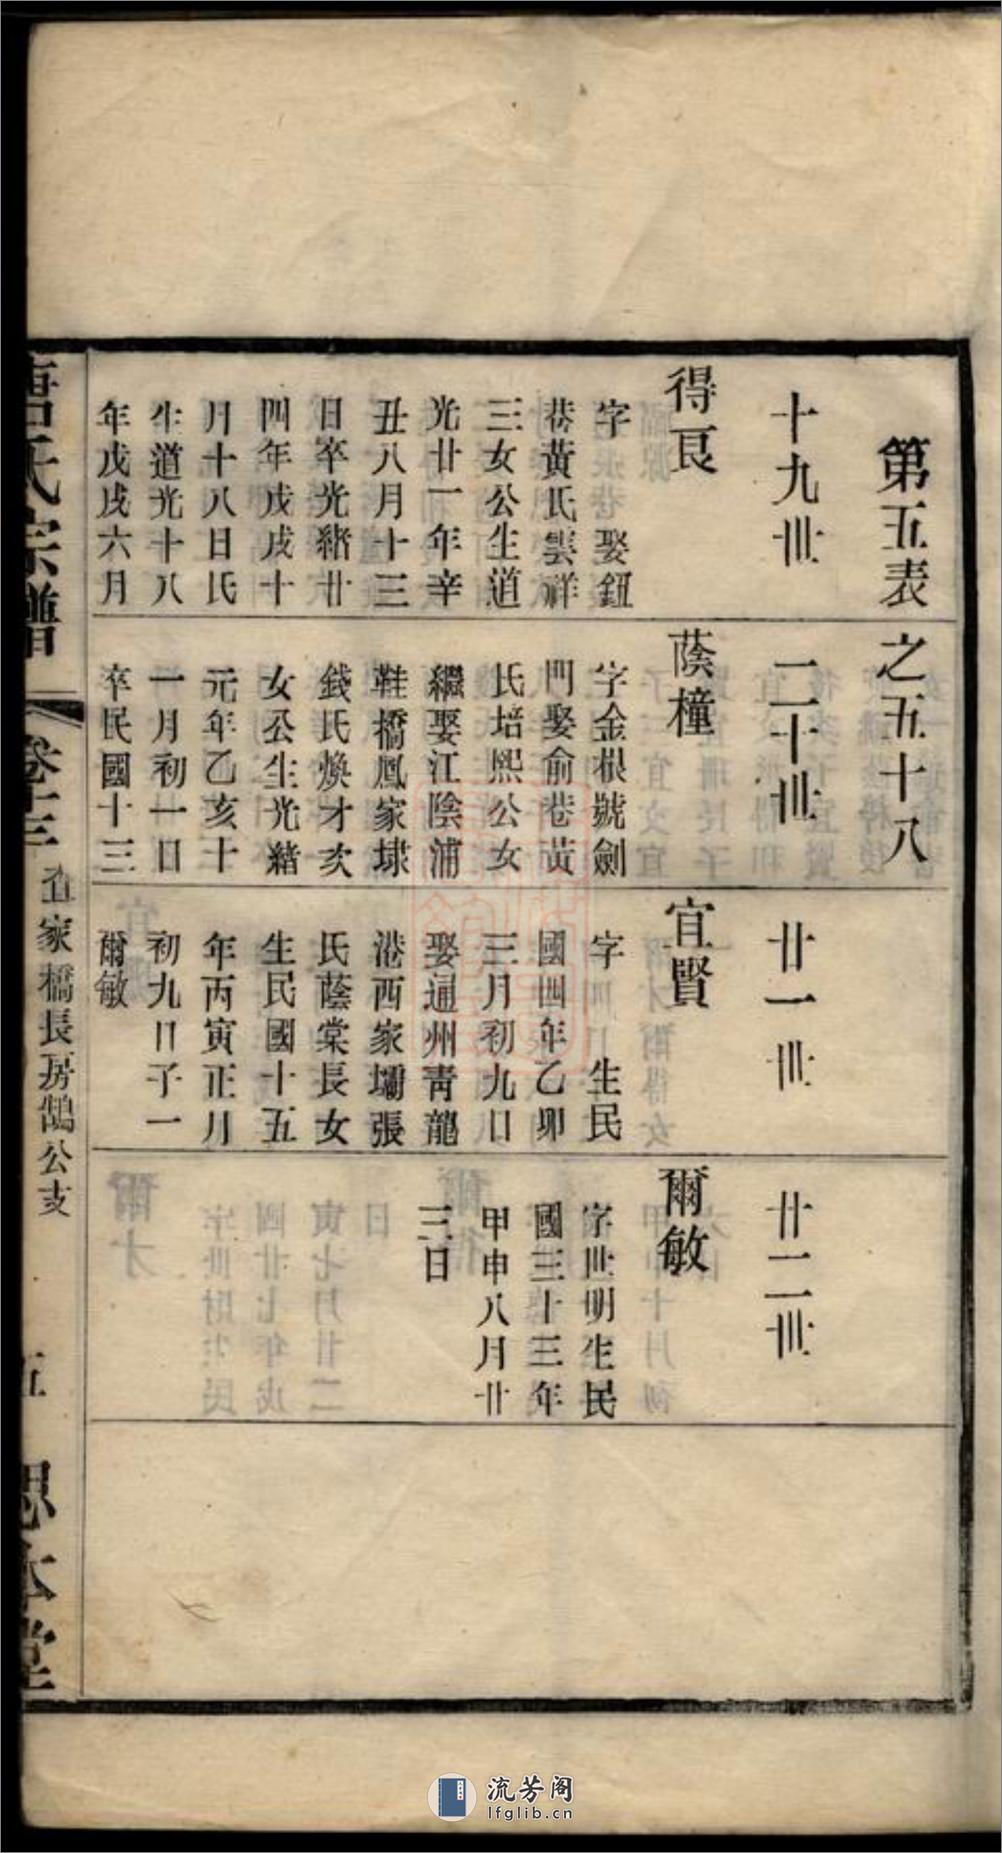 第五表之五十八
十九世
得良
字　娶鈕
巷黃氏雲祥
三女公生道
光廿一年辛
丑八月十三
日卒光緒廿
四年戊戌十
月十八日氏
生道光十八
年戊戌六月
二十世
蔭橦
字金根號劍
門娶俞巷黃
氏培熙公女
繼娶江陰浦
鞋橋鳳家埭
錢氏煥才次
女公生光緒
元年乙亥十
一月初一日
卒民國十三
廿一世
宜賢
字　生民
國四年乙卯
三月初九日
娶通州青龍
港西家壩張
氏蔭棠長女
生民國十五
年丙寅正月
初九日子一
爾敏
廿二世
爾敏
字世明生民
國三十三年
甲申八月廿
三日
氏宗譜
卷十三
查家橋長房鵠公支
五
思本堂
流芳阁
lfglib.cn